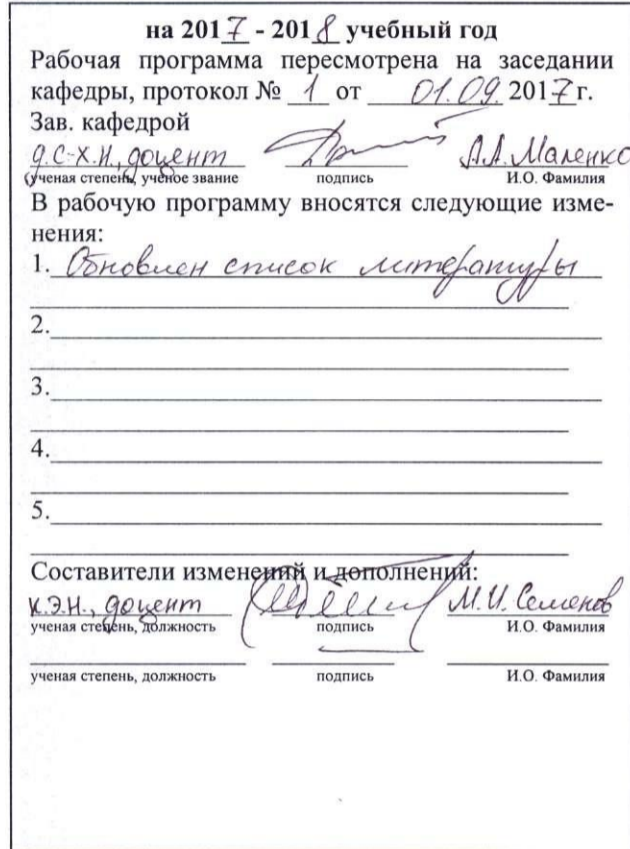 на 2017 - 2018 учебный год
Рабочая программа пересмотрена на заседании
кафедры, протокол № 1 от 01.09. 2017 г.
Зав. кафедрой
д.с-х.н., доцент А.А. Маленко
ученая степень, ученое звание подпись И.О. Фамилия
В рабочую программу вносятся следующие изме-
нения:
1. Обновлен список литературы
2.
3.
4.
5.
Составители изменений и дополнений:
к.э.н., доцент М.И. Семенов
ученая степень, должность подпись И.О. Фамилия
ученая степень, должность подпись И.О. Фамилия